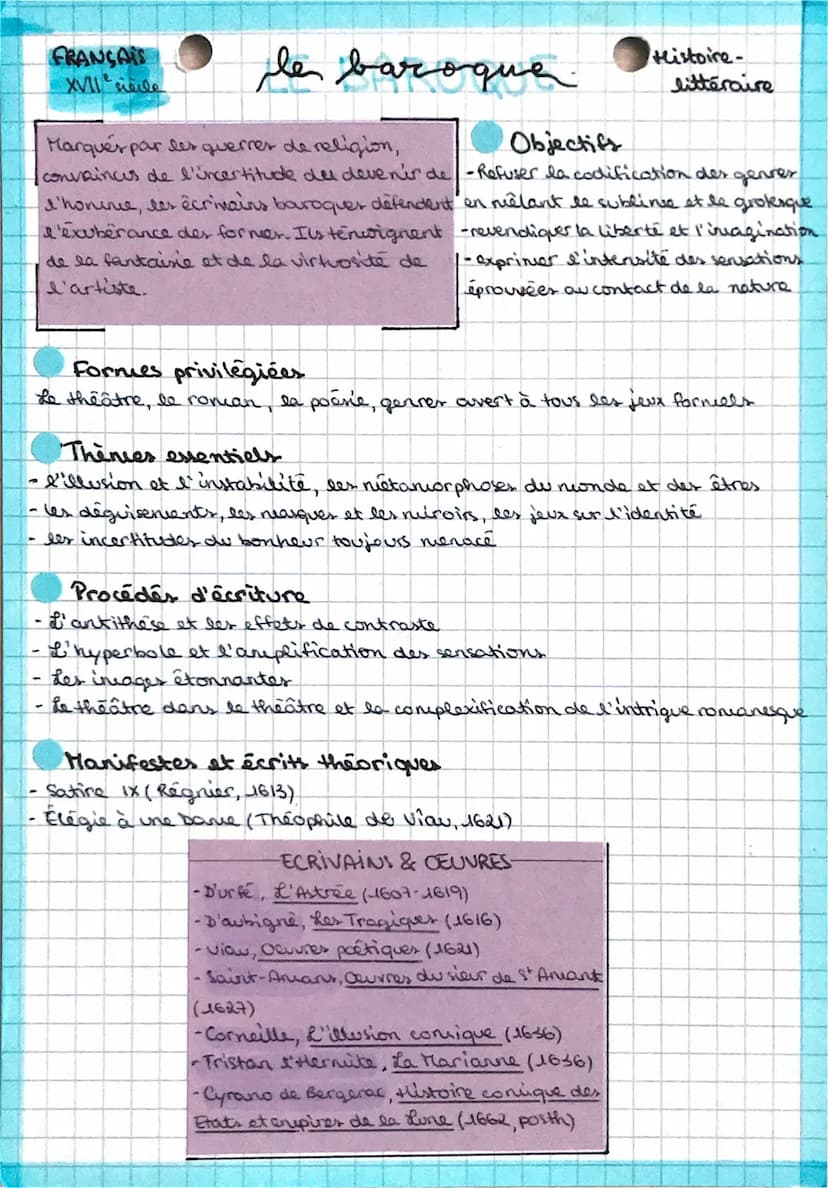 FRANÇAIS
XVIIe siècle
le baroque
LE BAROQUE
Histoire-
littéraire
Marqués par les guerres de religion,
convaincus de l'incertitude du devenir de
l'homme, les écrivains baroques défendent
l'éxubérance des formes. Ils témoignent
de la fantaisie et de la virtuosité de
l'artiste.
Objectifs
- Refuser la codification des genres
en mêlant le sublime et le grotesque
- revendiquer la liberté et l'imagination
- exprimer l'intensité des sensations
éprouvées au contact de la nature
Formes privilégiées
Le théâtre, le roman, la poésie, genres ouvert à tous les jeux formels
Thèmes essentiels
- l'illusion et l'instabilité, les métamorphoses du monde et des êtres
- les déguisements, les masques et les miroirs, les jeux sur l'identité
- les incertitudes du bonheur toujours menacé
Procédés d'écriture
- L'antithèse et les effets de contraste
- L'hyperbole et l'amplification des sensations
- Les images étonnantes
- Le théâtre dans le théâtre et la complexification de l'intrigue romanesque
Manifestes et écrits théoriques
- Satire IX (Régnier, 1613)
- Élégie à une Dame (Théophile de Viau, 1621)
ECRIVAINS & ŒUVRES
- D'urfé, L'Astrée (1607-1619)
- D'aubigné, Les Tragiques (1616)
- Viau, Oeuvres poétiques (1621)
- Saint-Amans, Œuvres du sieur de St Amant
(1627)
- Corneille, L'illusion comique (1636)
- Tristan l'Hermite, La Marianne (1636)
- Cyrano de Bergerac, Histoire comique des
Etats et empires de la Lune (1662, posth)